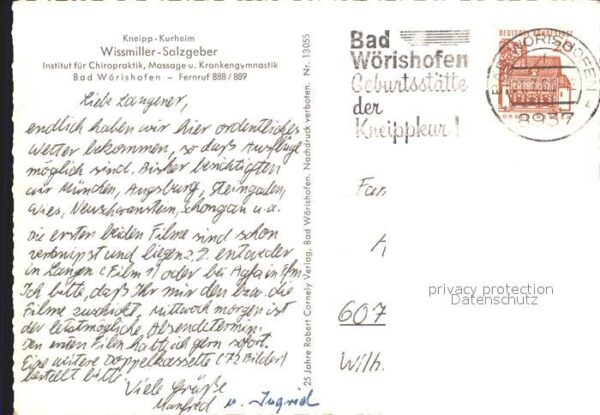 Kneipp-Kurheim
Wissmiller-Salzgeber
Institut für Chiropraktik, Massage u. Krankengymnastik
Bad Wörishofen – Fernruf 888/889
Liebe Langener,
endlich haben wir hier ordentliches
Wetter bekommen, so daß Ausflüge
möglich sind. Bisher besichtigten
wir München, Augsburg, Steingaden,
Wies, Neuschwanstein, Schongau u.a.
Die ersten beiden Filme sind schon
verknipst und liegen z.Z. entweder
in Langen (Film 1) oder bei Agfa in
Ich bitte, daß Ihr mir den bzw. die
Filme zuschickt, mittwoch morgen ist
der letztmögliche Absendetermin.
Den ersten Film hätt ich gern sofort.
Eine weitere Doppelkassette (73 Bilder)
bestellt bitte.
Viele Grüße
Manfred u. Ingrid
25 Jahre Robert Cornely Verlag, Bad Wörishofen. Nachdruck verboten. Nr. 13055
Bad
Wörishofen
Geburtsstätte
der
Kneippkur!
DEUTSCHE BUNDESPOST
20
BAD WÖRISHOFEN
8937
Fam
A
607
Wilh.
privacy protection
Datenschutz